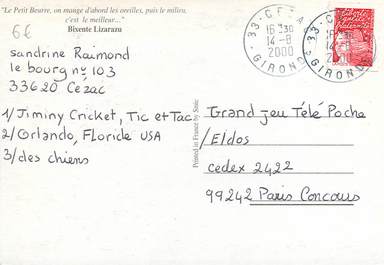 "Le Petit Beurre, on mange d'abord les oreilles, puis le milieu,
c'est le meilleur..."
Bixente Lizarazu
6€
sandrine Raimond
le bourg n° 103
33620 Cezac
1/ Jiminy Cricket, Tic et Tac
2/ Orlando, Floride USA
3/ des chiens
Printed in France by Satie
33 - CEZAC
16H30
14-8
2000
GIRONDE
Grand Jeu Télé Poche
/Eldos
cedex 2422
99242 Paris Concours